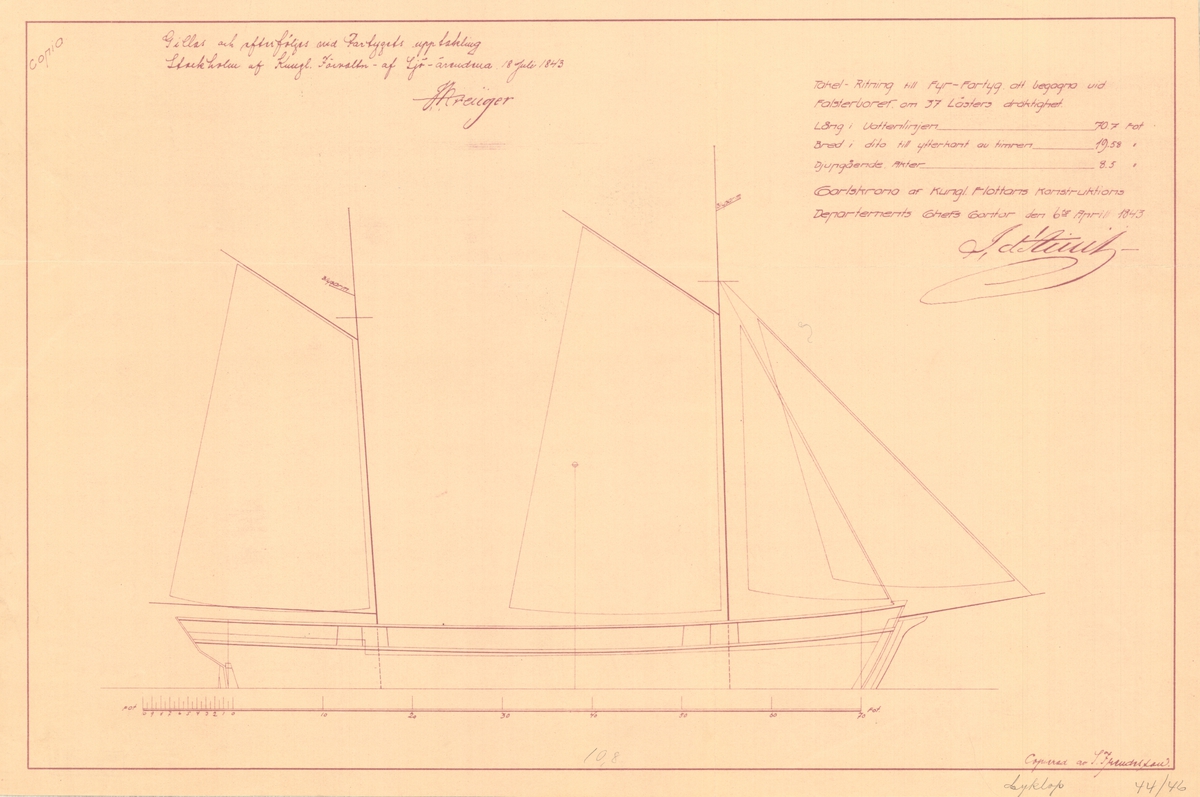 Copia
Gillas och efterföljes vid Fartygets uppt
Stockholm af Kungl. Förvaltn- af Sjö-ärendena 18 Juli 1843
JKreüger
Takel-Ritning till Fyr-Fartyg att begagna vid
Falsterboret, om 37 Lästers dräktighet
Läng i Vattenlinjen 70.7 Fot
Bred i dito till ytterkant av timren 19.58 "
Djupgående, Akter 8.5 "
Carlskrona av Kungl. Flottans Konstruktions
Departements Chefs Contor den 6te April 1843
Fot 10 9 8 7 6 5 4 3 2 1 0 10 20 30 40 50 60 70 Fot
Copieras av
Cyklop 44/46